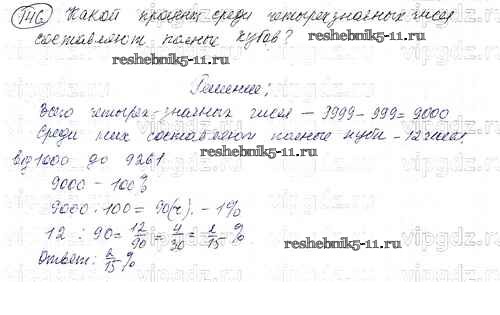 146 Какой процент среди четырехзначных чисел
составляют полные кубы?
reshebnik5-11.ru
Решение:
Всего четырех-значных чисел — 9999 - 999 = 9000
Среди них составляют полные кубы - 12 чисел,
reshebnik5-11.ru
от 1000 до 9261
9000 - 100%
9000 : 100 = 90(ч). - 1%
12 : 90 = 12/90 = 4/30 = 2/15 %
reshebnik5-11.ru
Ответ: 2/15 %